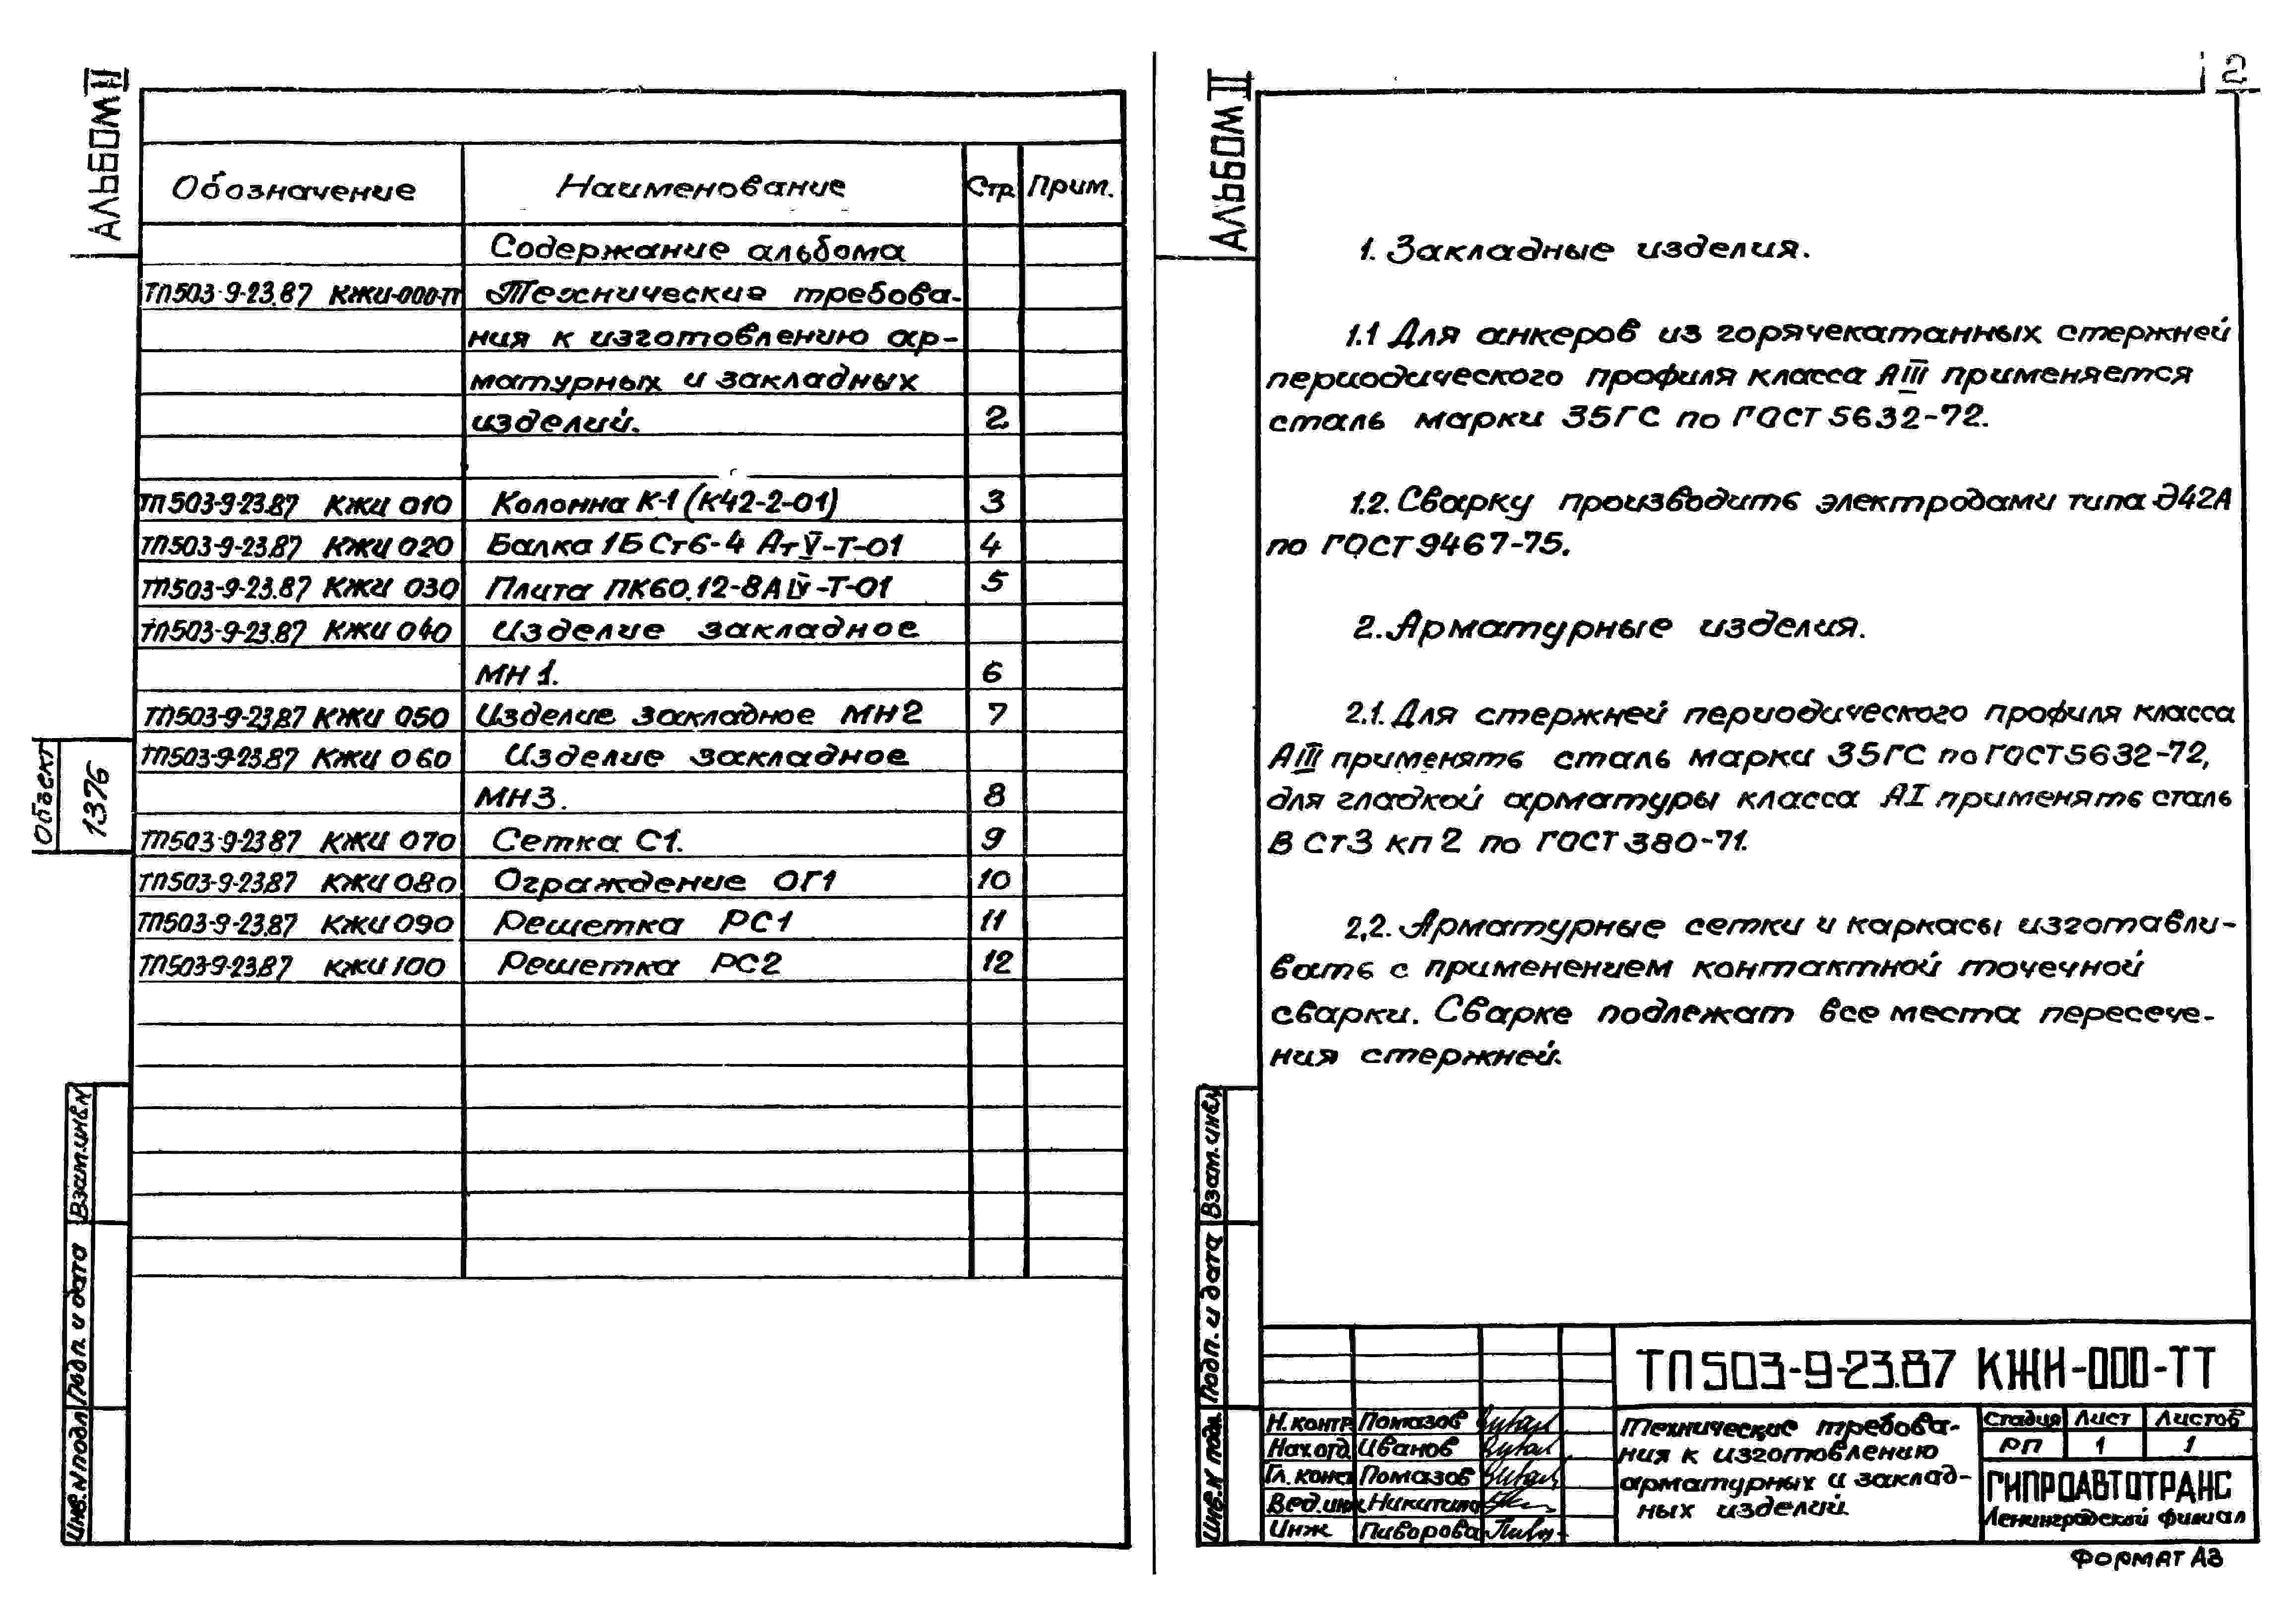 АЛЬБОМ II
Обозначение Наименование Стр. Прим.
Содержание альбома
ТП503-9-23.87 КЖИ-000-ТТ Технические требова-
ния к изготовлению ар-
матурных и закладных
изделий. 2
ТП503-9-23.87 КЖИ 010 Колонна К-1 (К42-2-01) 3
ТП503-9-23.87 КЖИ 020 Балка 1БСт6-4 АтV-Т-01 4
ТП503-9-23.87 КЖИ 030 Плита ПК60.12-8АIV-Т-01 5
ТП503-9-23.87 КЖИ 040 Изделие закладное
МН1. 6
ТП503-9-23.87 КЖИ 050 Изделие закладное МН2 7
ТП503-9-23.87 КЖИ 060 Изделие закладное
МН3. 8
ТП503-9-23.87 КЖИ 070 Сетка С1. 9
ТП503-9-23.87 КЖИ 080 Ограждение ОГ1 10
ТП503-9-23.87 КЖИ 090 Решетка РС1 11
ТП503-9-23.87 КЖИ 100 Решетка РС2 12
Объект
1376
Взам.инв.N
Подп. и дата
Инв.N подл
АЛЬБОМ II
2
1. Закладные изделия.
1.1 Для анкеров из горячекатанных стержней
периодического профиля класса АIII применяется
сталь марки 35ГС по ГОСТ 5632-72.
1.2. Сварку производить электродами типа Э42А
по ГОСТ 9467-75.
2. Арматурные изделия.
2.1. Для стержней периодического профиля класса
АIII применять сталь марки 35ГС по ГОСТ 5632-72,
для гладкой арматуры класса АI применять сталь
В Ст3 кп2 по ГОСТ 380-71.
2.2. Арматурные сетки и каркасы изготавли-
вать с применением контактной точечной
сварки. Сварке подлежат все места пересече-
ния стержней.
Взам.инв.N
Подп. и дата
Инв.N подл.
ТП503-9-23.87 КЖИ-000-ТТ
Н.контр. Помазов
Нач.отд. Иванов
Гл.конст Помазов
Вед.инж Никитина
Инж Пиворова
Технические требова-
ния к изготовлению
арматурных и заклад-
ных изделий.
Стадия Лист Листов
РП 1 1
ГИПРОАВТОТРАНС
Ленинградский филиал
ФОРМАТ А3